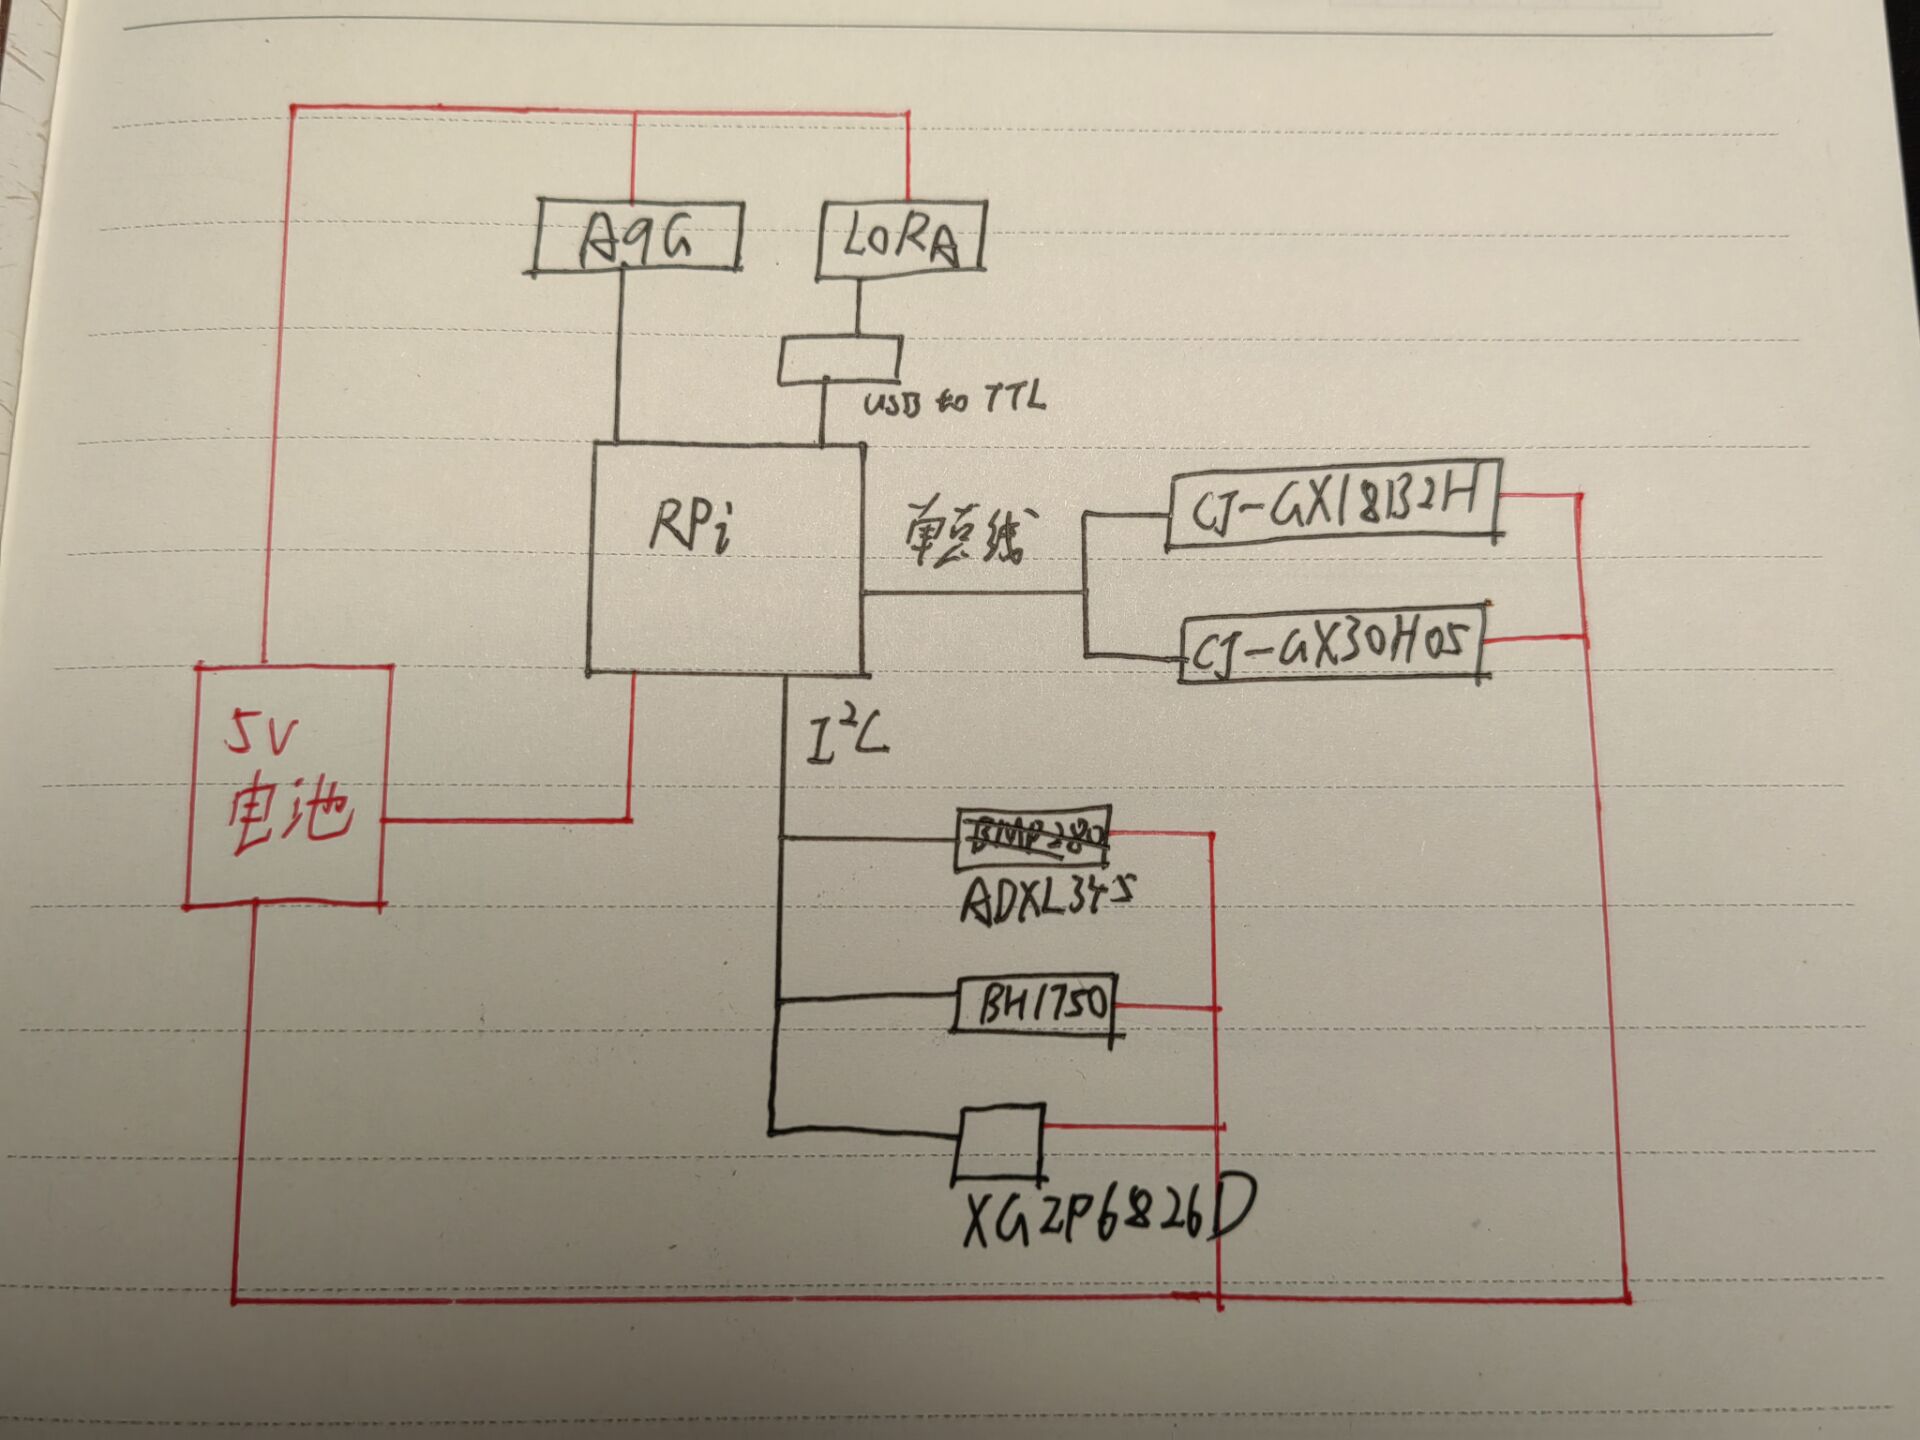 A9G
LoRA
USB to TTL
RPi
单总线
CJ-GX18B2H
CJ-GX30H05
5V
电池
I²C
BMP280
ADXL345
BH1750
XGZP6826D